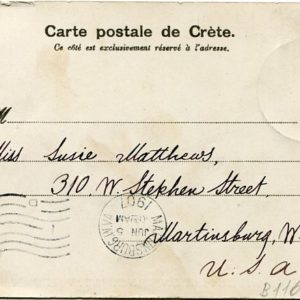 Carte postale de Crète.
Ce côté est exclusivement réservé à l'adresse.
M
Miss Susie Matthews,
310, W. Stephen Street,
Martinsburg, W.
U.S.A
MARTINSBURG W.VA.
JUN 5
AM
1907
D
B116